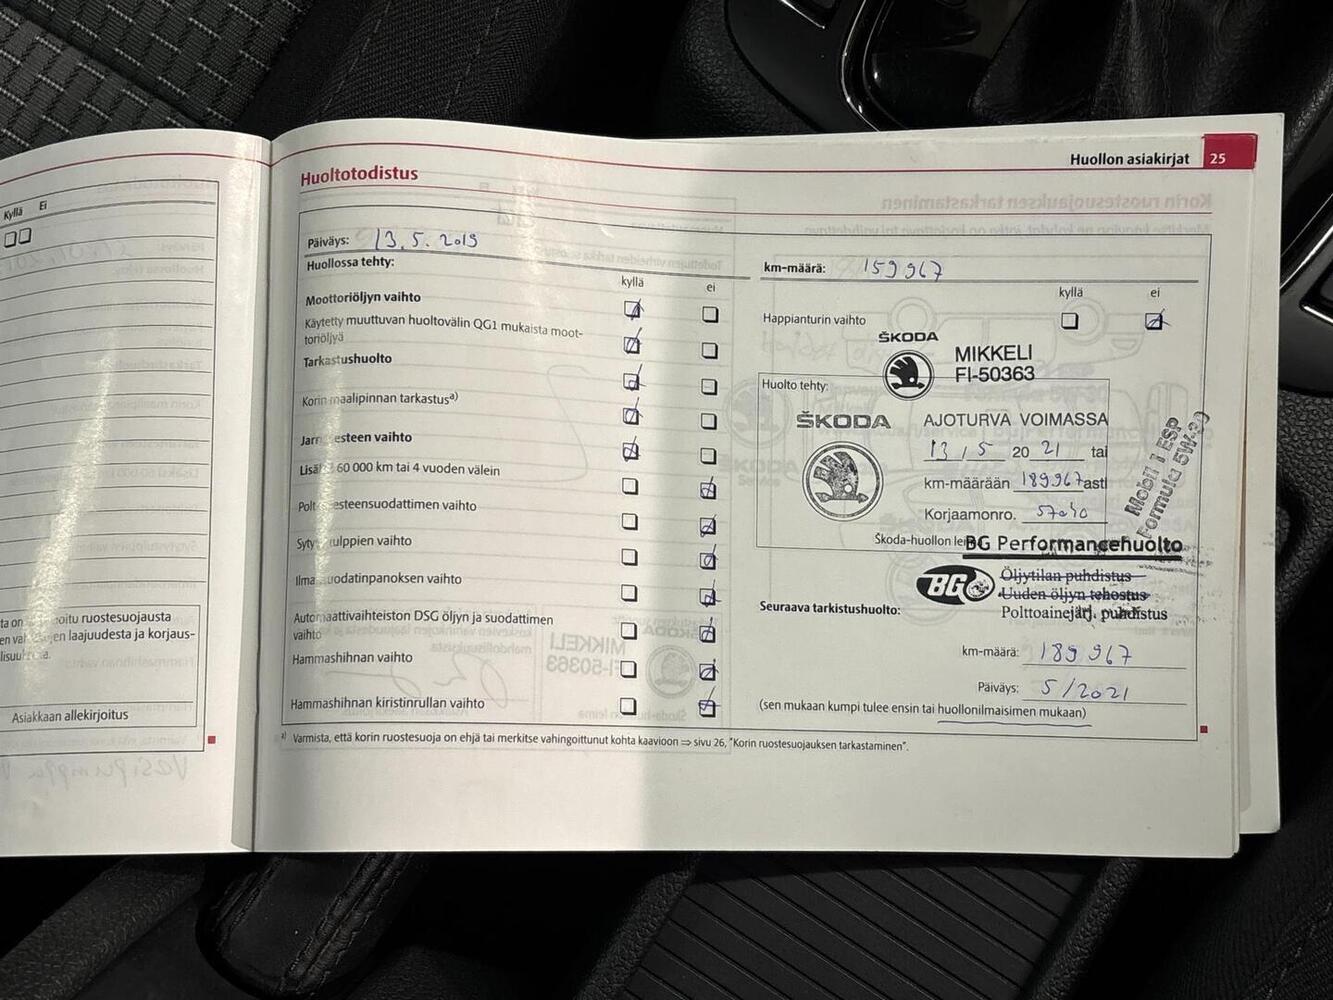 Huollon asiakirjat 25
Kyllä Ei
oitu ruostesuojausta
en laajuudesta ja korjaus-
Asiakkaan allekirjoitus
Huoltotodistus
Päiväys: 13.5.2019
Huollossa tehty:
kyllä ei
Moottoriöljyn vaihto
Käytetty muuttuvan huoltovälin QG1 mukaista moot-
toriöljyä
Tarkastushuolto
Korin maalipinnan tarkastus a)
Jarr esteen vaihto
Lisä 60 000 km tai 4 vuoden välein
Polt esteensuodattimen vaihto
Syty tulppien vaihto
Ilma uodatinpanoksen vaihto
Automaattivaihteiston DSG öljyn ja suodattimen
vaihto
Hammashihnan vaihto
Hammashihnan kiristinrullan vaihto
km-määrä: 159 967
kyllä ei
Happianturin vaihto
ŠKODA
MIKKELI
FI-50363
Huolto tehty:
ŠKODA
AJOTURVA VOIMASSA
13 / 5 20 21 tai
km-määrään 189967 asti
Korjaamonro.
Mobil 1 ESP
Formula 5W-30
Škoda-huollon lei
BG Performancehuolto
BG
Öljytilan puhdistus
Uuden öljyn tehostus
Polttoainejärj. puhdistus
Seuraava tarkistushuolto:
km-määrä: 189 967
Päiväys: 5/2021
(sen mukaan kumpi tulee ensin tai huollonilmaisimen mukaan)
a) Varmista, että korin ruostesuoja on ehjä tai merkitse vahingoittunut kohta kaavioon ⇒ sivu 26, "Korin ruostesuojauksen tarkastaminen".